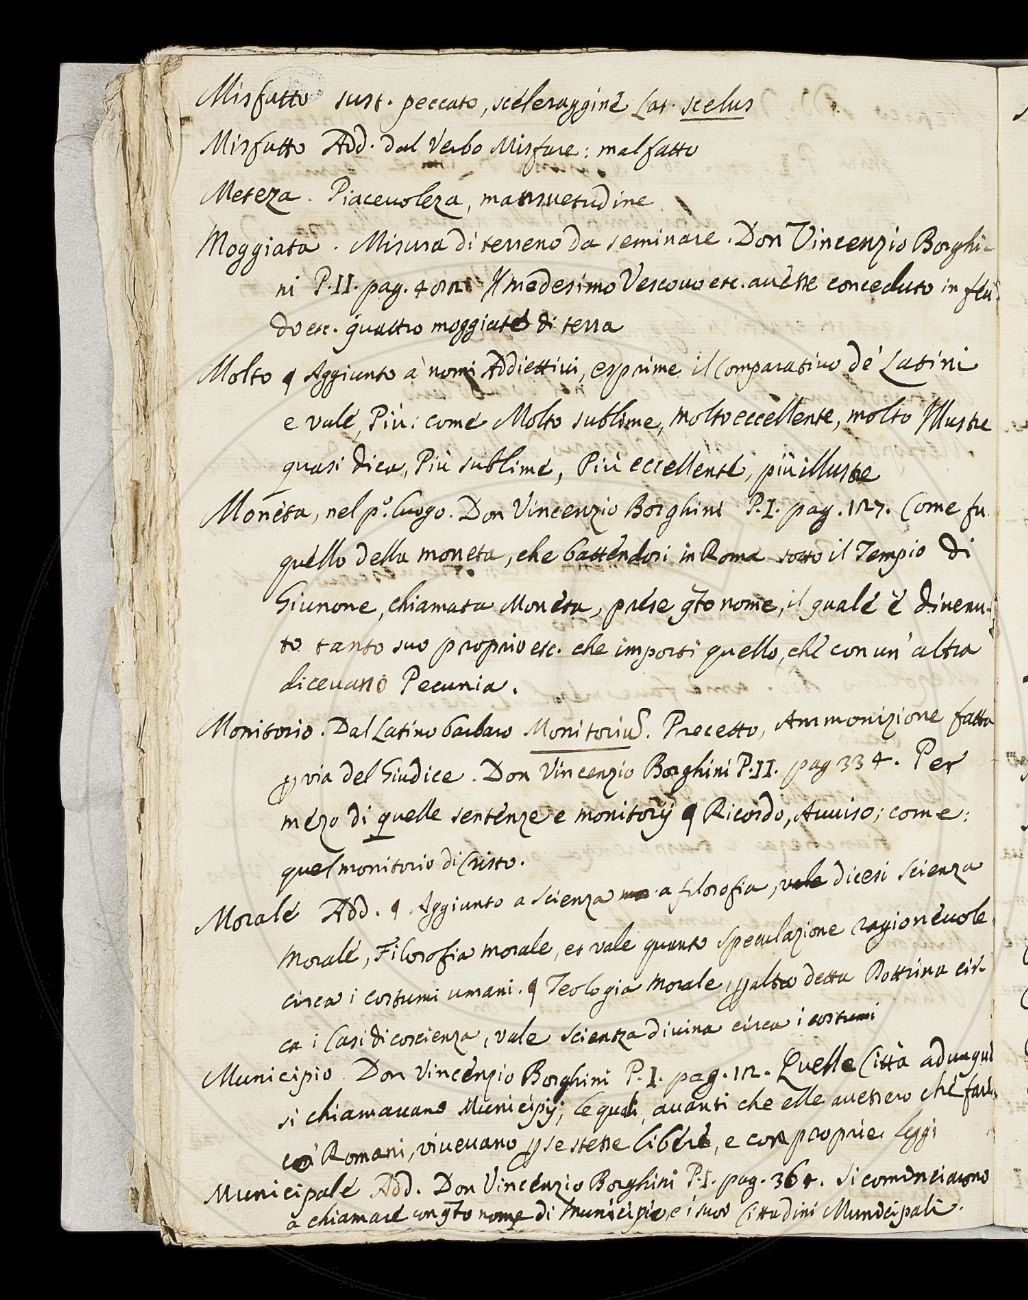 Misfatto sust. peccato, sceleraggine Lat. scelus
Misfatto Add. dal Verbo Misfare: malfatto
Mitezza. Piacevoleza, mansuetudine
Moggiata. Misura di terreno da seminare. Don Vincenzio Borghi-
ni P. II. pag. Il medesimo Vescovo etc. avesse conceduto in feu
do etc. quattro moggiate di terra
Molto ¶ Aggiunto a' nomi Addiettivi, esprime il Comparativo de' Latini
e vale, Più: come Molto sublime, molto eccellente, molto Illustre
quasi dica, Più sublime, Più eccellente, più illustre
Moneta, nel p.º luogo. Don Vincenzio Borghini P. I. pag. 127. Come fu
quello della moneta, che battendosi in Roma sotto il Tempio di
Giunone, chiamata Moneta, prese q̃to nome, il quale è divenu-
to tanto suo proprio etc. che importi quello, che con un' altra
dicevano Pecunia.
Monitorio. Dal Latino barbaro Monitoriũ. Precetto, Ammonizione fatta
ꝑ via del Giudice. Don Vincenzio Borghini P. II. pag 334. Per
mezo di quelle sentenze e monitorij ¶ Ricordo, Avviso; come:
quel monitorio di Cristo.
Morale Add. ¶ Aggiunto a scienza a filosofia, vale dicesi scienza
Morale, Filosofia morale, et vale quanto speculazione ragionevole
circa i costumi umani. ¶ Teologia Morale, ꝑ altro detta Dottrina cir-
ca i Casi di coscienza, vale scientza divina circa i costumi
Municipio. Don Vincenzio Borghini P. I. pag. 12. Quelle Città adunque
si chiamavano Municipij, le quali, avanti che elle avessero che fare
co' Romani, vivevano ꝑ se stesse libere, e con proprie leggi
Municipale Add. Don Vincenzio Borghini P. I. pag. 364. Si cominciarono
a chiamare con q̃to nome di Municipio, e i suoi Cittadini Municipali.